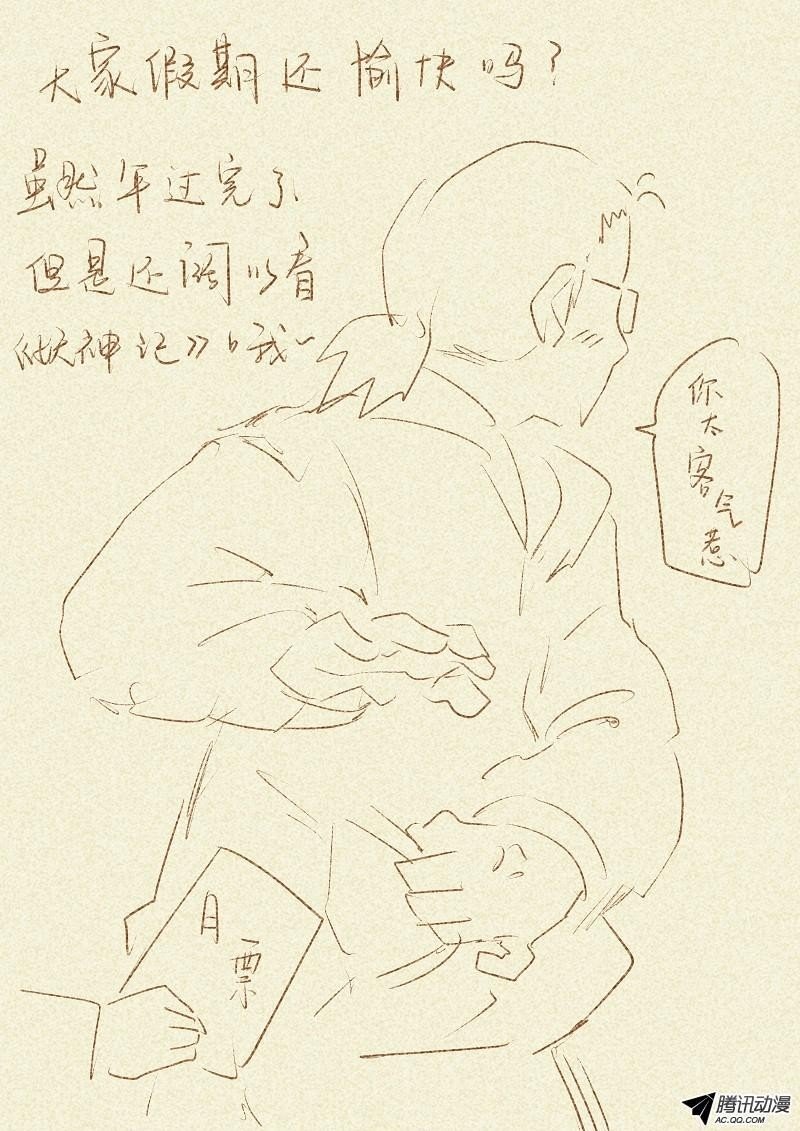 大家假期还愉快吗?
虽然年过完了
但是还阔以看
《妖神记》哦~
你太客气惹
月票
腾讯动漫
AC.QQ.COM